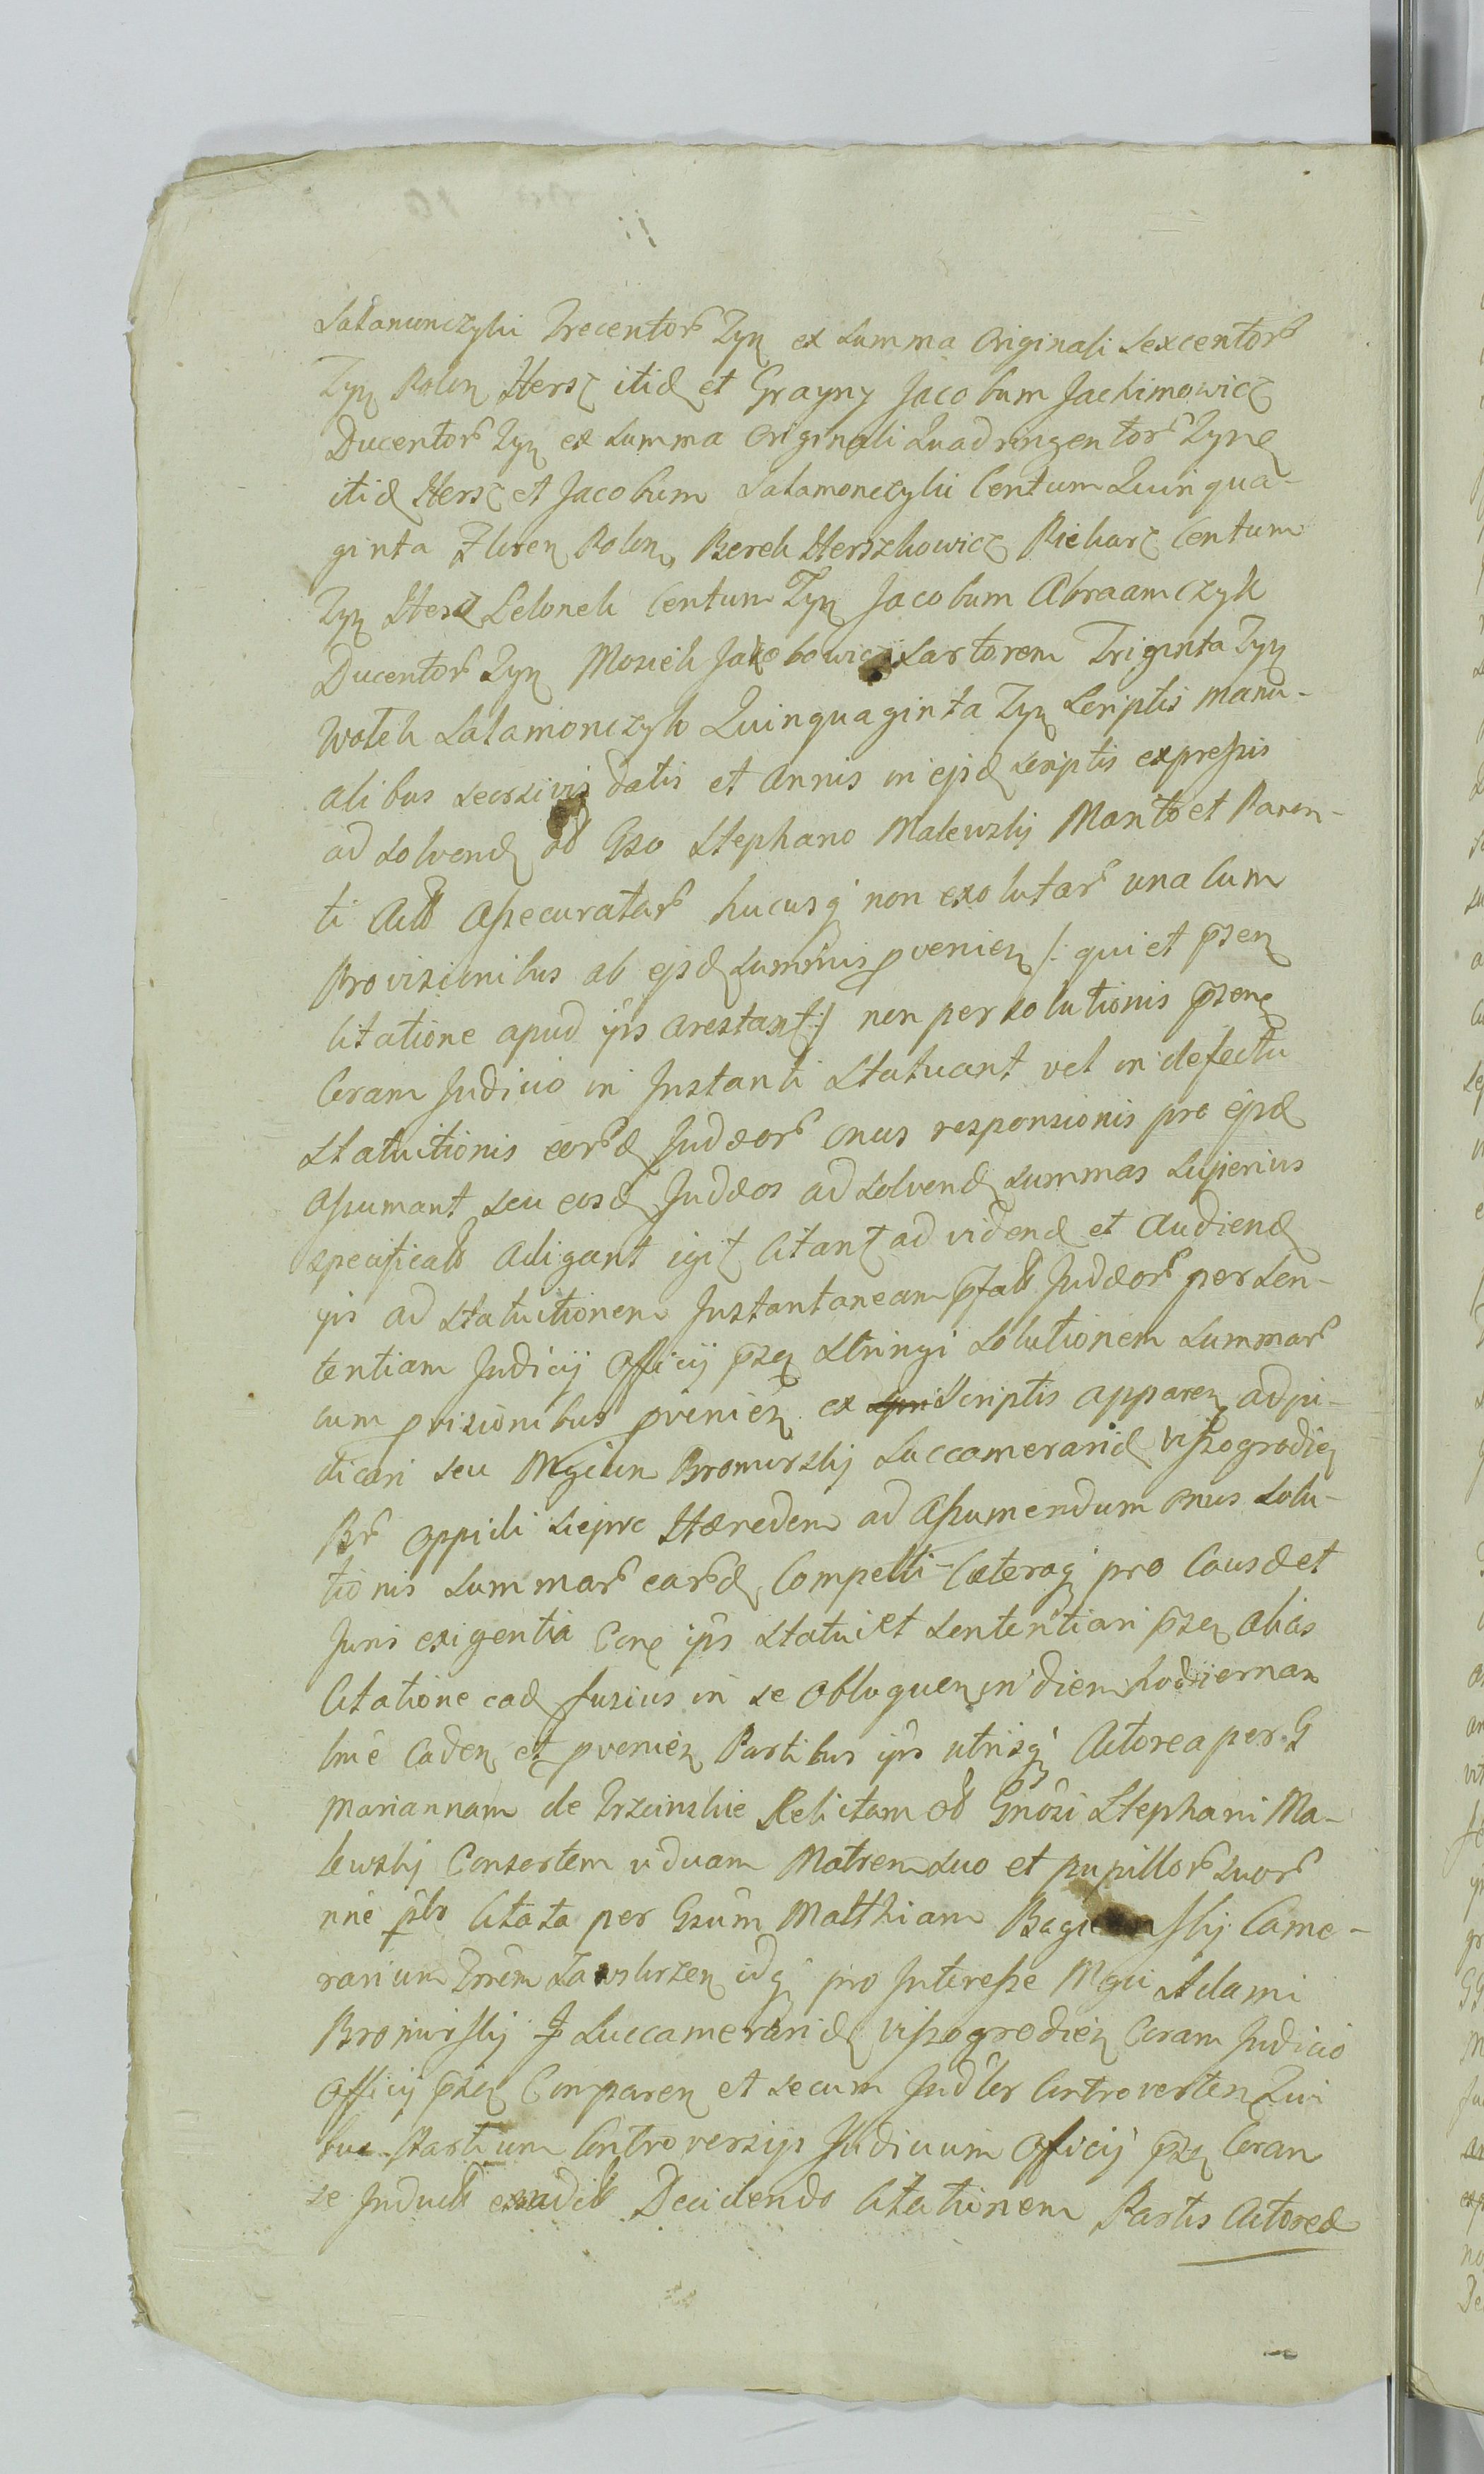 Salamonczyki Trecentor Tyn ex Summa Originali Sexcentor
Tyn Polon Hersz itid et Grayny Jacobum Jachimowicz
Ducentor Tyn ex Summa Originali Quadringentor Tyne
itid Hersz et Jacobum Salamonczyki Centum Quinqua-
ginta Floren Polon, Berek Herszkowicz Piekarz Centum
Tyn Hersz Zelonek Centum Tyn Jacobum Abraamczyk
Ducentor Tyn Mosiek Jakobowicz Sartorem Triginta Tyn
Wolek Salamonczyk Quinquaginta Tyn Scriptis manu-
alibus seorsivis datis et Annis in ejsd scriptis expressis
ad solvend Gso Stephano Malewskij Marito et Paren-
ti Act Assecuratar hucusq non exolutar una Cum
Provisionibus ab ejsd Summis pvenien /: qui et psen
Citatione apud ips arestant :/ non persolutionis psen
Coram Judicio in Instanti Statuant vel in defectu
Statuitionis eord Judæor onus responsionis pro ejsd
Assumant seu eosd Judæos ad Solvend Summas Superius
specificat Adigant igit Citant ad vidend et Audiend
ips ad Statuitionem Instantaneam pfat Judæor per Sen-
tentiam Judicij Officij psen Stringi Solutionem Summar
cum pvisionibus pvenien ex Scriptis apparen adju-
dicari seu Mgcum Bromirskij Succamerarid Vissogrodien
Br Oppidi Sieprc Hæredem ad Assumendum onus Solu-
tionis Summar eard Compelli Cæteraq pro Causæ et
Juris exigentia Cone ips Statui et Sententiari psen alias
Citatione ead fusius in se Obloquen in diem hodiernam
lme Caden et pvenien Partibus ips utrisq Actorea per G
Mariannam de Trzcinskie Relictam Gnosi Stephani Ma-
lewskij Consortem viduam Matrem suo et pupillor suor
nne Citata per Gsum Matthiam Came-
rarium Trrem Zawskrzen idq pro Interesse Mgci Adami
Bromirskij Succamerarid Vissogrodien Coram Judicio
Officij psen Comparen et secum Judler Controverten Qui
bus Partium Controversijs Judicium Officij psen Coram
se Induct exaudit Decidendo Citationem Partis Actoreæ